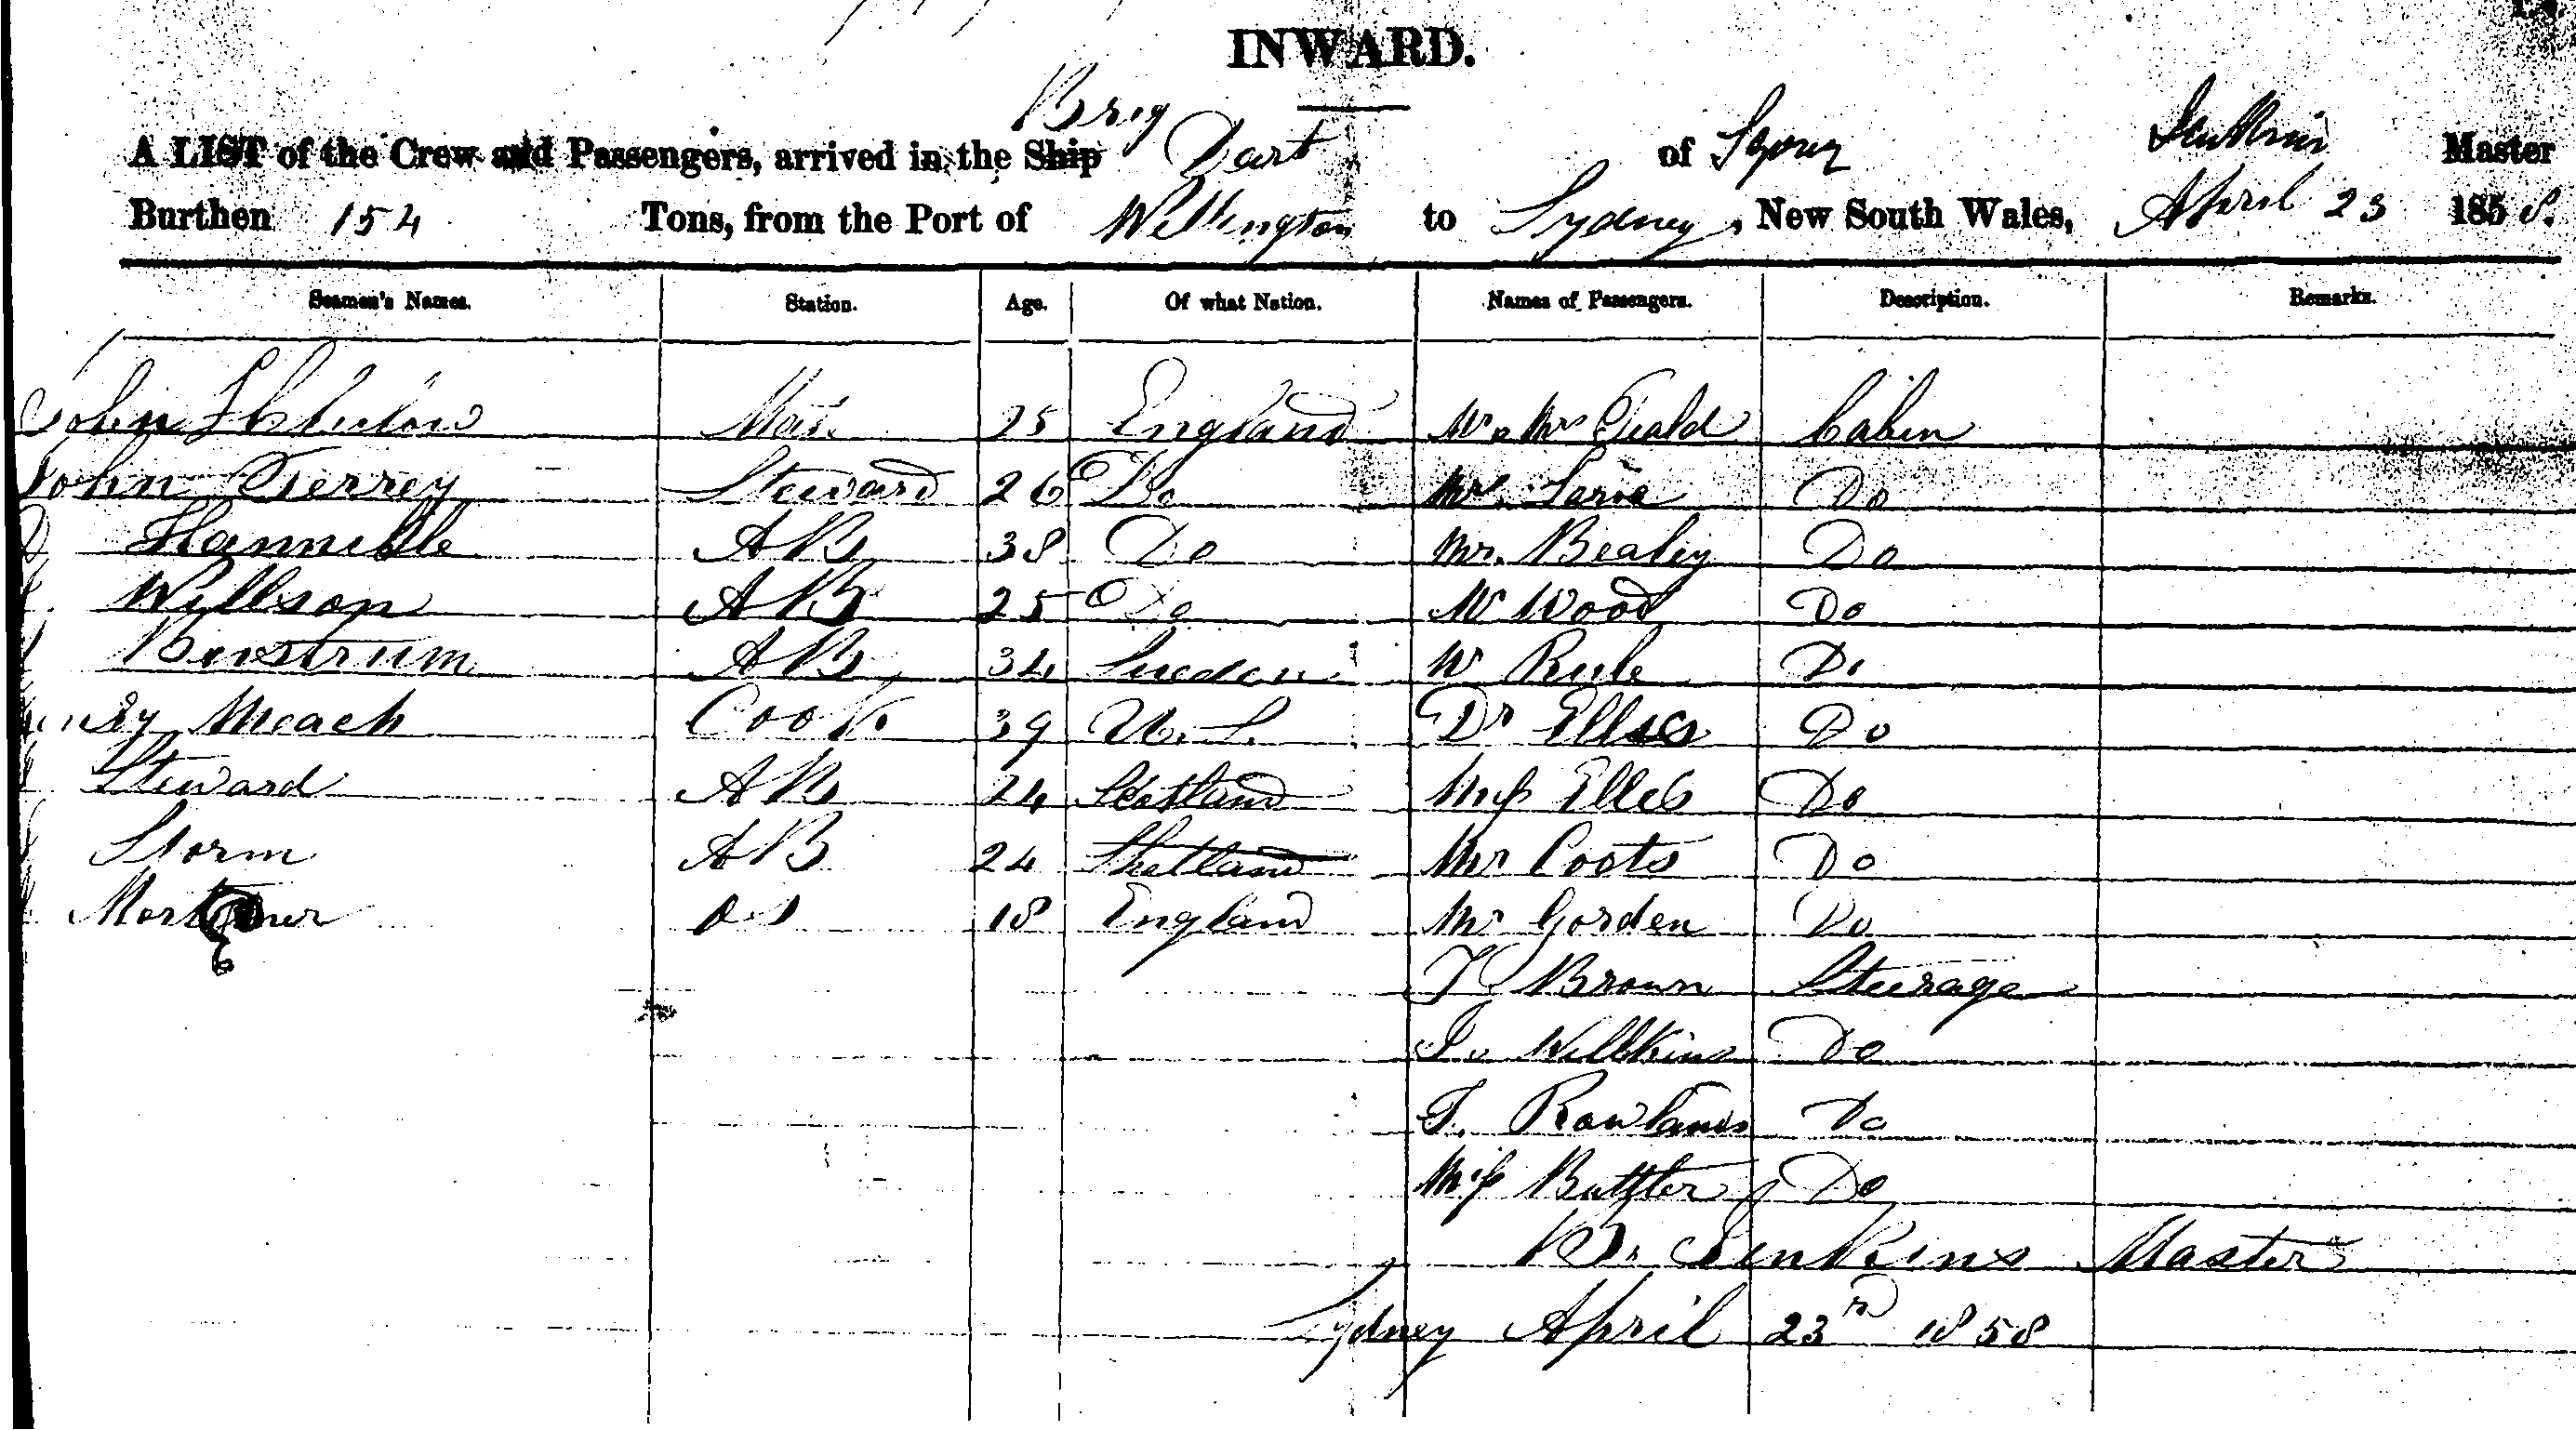 INWARD.
Brig
A LIST of the Crew and Passengers, arrived in the Ship Dart of Master
Burthen 154 Tons, from the Port of Wellington to Sydney, New South Wales, April 23 1858.
Seamen's Names. Station. Age. Of what Nation. Names of Passengers. Description. Remarks.
John 25 England Mr & Mrs Cabin
John Terrey Steward 26 Do Do
Hannible AB 38 Do Mr. Bealey Do
Willson AB 25 Do Mr Wood Do
AB 34 Sueden Mr Rule Do
Meach Cook 39 U. S. Dr Ellis Do
Steward AB 24 Scotland Miss Ellis Do
Storm AB 24 Shetland Mr Coots Do
Mortimer OS 18 England Mr Gorden Do
T Brown Steerage
Willkins Do
T. Rowlands Do
Miss Buttler Do
B. Jenkins Master
Sydney April 23rd 1858